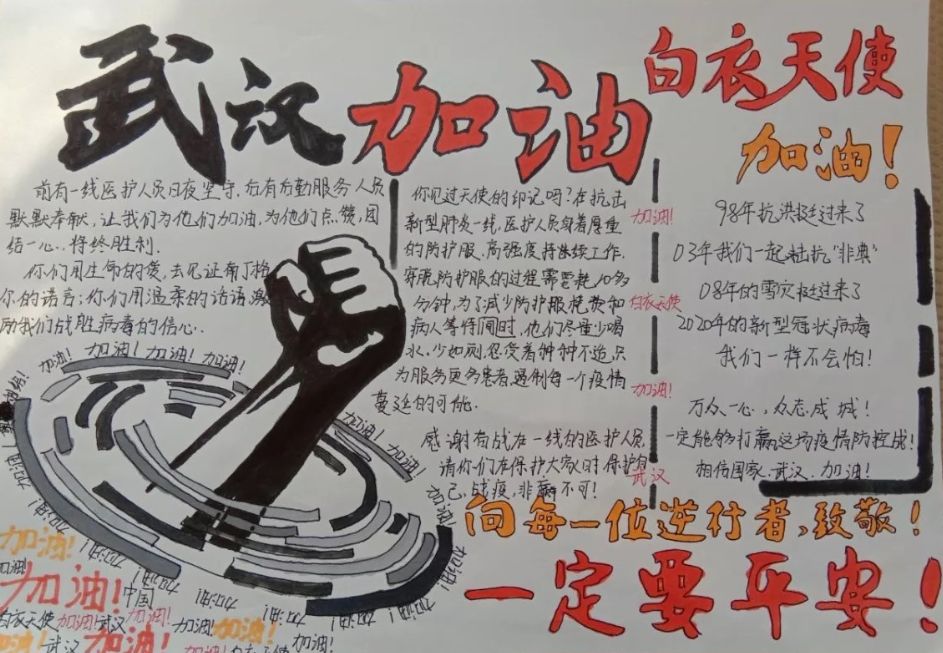 武汉加油
白衣天使
加油！
前有一线医护人员日夜坚守，后有后勤服务人员
默默奉献，让我们为他们加油，为他们点赞，团
结一心，将终胜利。
你们用生命的爱，去见证南丁格
尔的诺言；你们用温柔的话语激
励我们战胜病毒的信心。
你见过天使的印记吗？在抗击
新型肺炎一线，医护人员身着厚重
的防护服，高强度持续工作。
穿脱防护服的过程需要耗10多
分钟，为了减少防护服耗费和
病人等待间时，他们尽量少喝
水，少如厕，忍受着种种不适，只
为服务更多患者，遏制每一个疫情
蔓延的可能。
感谢奋战在一线的医护人员
请你们在保护大家时保护自
己，战疫，非赢不可！
加油！
白衣天使
加油！
武汉
98年抗洪挺过来了
03年我们一起抵抗“非典”
08年的雪灾挺过来了
2020年的新型冠状病毒
我们一样不会怕！
万众一心，众志成城！
一定能够打赢这场疫情防控战！
相信国家，武汉，加油！
向每一位逆行者，致敬！
一定要平安！
加油！加油！加油！加油！
加油！
加油！
加油！
加油！
加油！
加油！中国加油！
白衣天使加油！武汉
加油！加油！
武汉加油！加油！白衣天使加油！